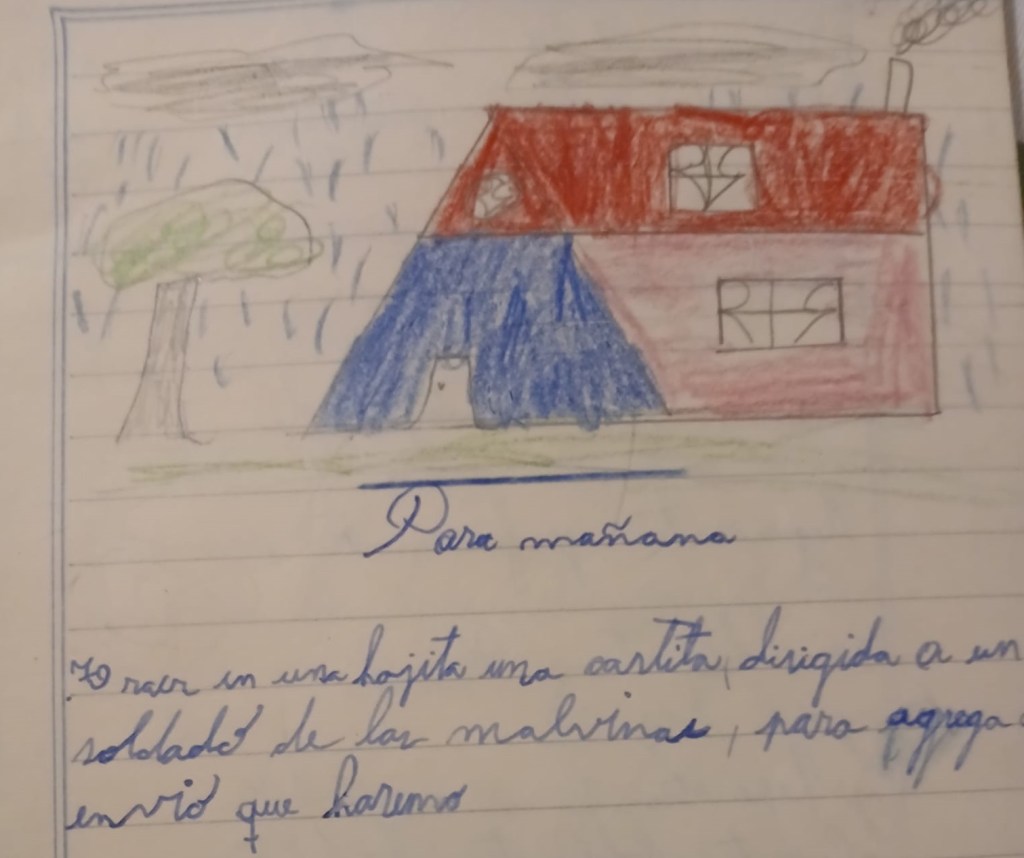 Para mañana
Traer en una hojita una cartita, dirigida a un
soldado de las malvinas, para agrega
envio que haremo